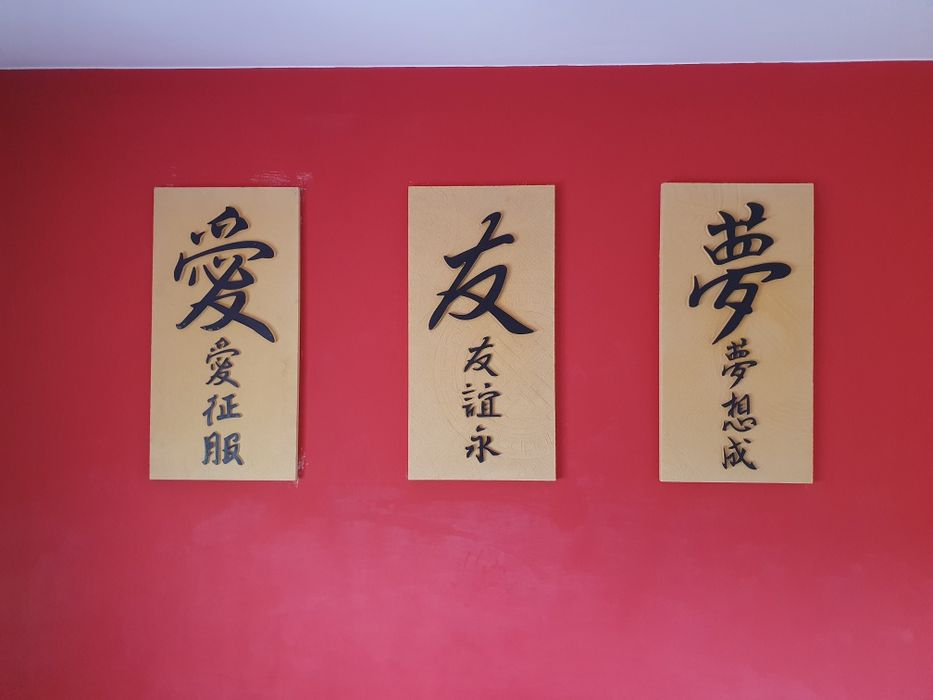 愛
愛征服
友
友誼永
夢
夢想成